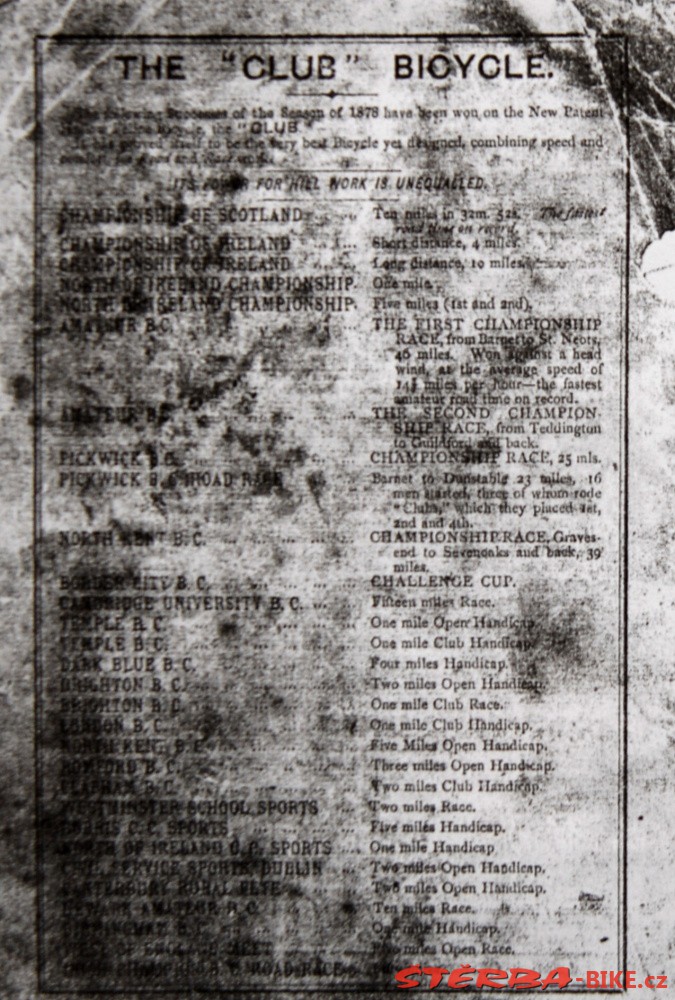 THE "CLUB" BICYCLE.
The following Successes of the Season of 1878 have been won on the New Patent
Bicycle, the "CLUB"
It has proved itself to be the very best Bicycle yet designed, combining speed and
ITS POWER FOR HILL WORK IS UNEQUALLED.
CHAMPIONSHIP OF SCOTLAND ... ... Ten miles in 32m. 52s. The fastest
road time on record.
CHAMPIONSHIP OF IRELAND ... ... Short distance, 4 miles.
CHAMPIONSHIP OF IRELAND ... ... Long distance, 10 miles.
NORTH OF IRELAND CHAMPIONSHIP. One mile.
NORTH OF IRELAND CHAMPIONSHIP. Five miles (1st and 2nd).
AMATEUR B.C. ... ... THE FIRST CHAMPIONSHIP
RACE, from Barnet to St. Neots,
46 miles. Won against a head
wind, at the average speed of
miles per hour—the fastest
amateur road time on record.
AMATEUR B.C. ... ... THE SECOND CHAMPION-
SHIP RACE, from Teddington
to Guildford and back.
PICKWICK B.C. ... ... CHAMPIONSHIP RACE, 25 mls.
PICKWICK B.C. ROAD RACE ... Barnet to Dunstable 23 miles, 16
men started, three of whom rode
"Clubs," which they placed 1st,
2nd and 4th.
NORTH KENT B.C. ... ... CHAMPIONSHIP RACE, Graves-
end to Sevenoaks and back, 39
miles.
BORDER CITY B.C. ... ... CHALLENGE CUP.
CAMBRIDGE UNIVERSITY B.C. ... Fifteen miles Race.
TEMPLE B.C. ... ... One mile Open Handicap.
TEMPLE B.C. ... ... One mile Club Handicap.
DARK BLUE B.C. ... ... Four miles Handicap.
BRIGHTON B.C. ... ... Two miles Open Handicap.
BRIGHTON B.C. ... ... One mile Club Race.
LONDON B.C. ... ... One mile Club Handicap.
NORTH KENT B.C. ... ... Five Miles Open Handicap.
ROMFORD B.C. ... ... Three miles Open Handicap.
CLAPHAM B.C. ... ... Two miles Club Handicap.
WESTMINSTER SCHOOL SPORTS ... Two miles Race.
C.C. SPORTS ... ... Five miles Handicap.
NORTH OF IRELAND C.C. SPORTS ... One mile Handicap
CIVIL SERVICE SPORTS, DUBLIN ... Two miles Open Handicap.
CANTERBURY RURAL FETE ... Two miles Open Handicap.
NEWARK AMATEUR B.C. ... Ten miles Race.
One mile Handicap.
MEET ... miles Open Race.
B.C. ROAD RACE
STERBA-BIKE.cz